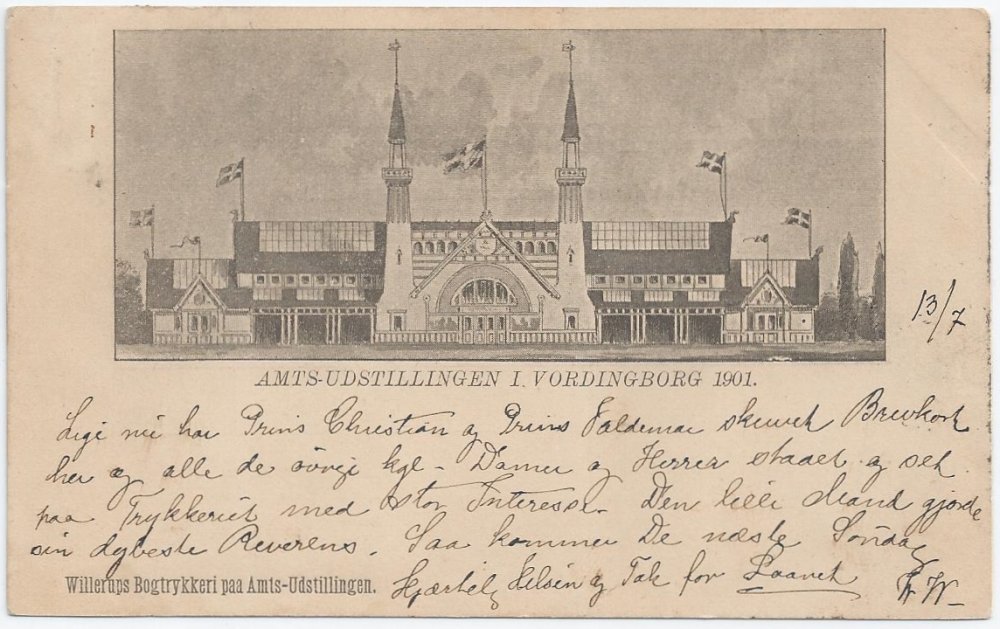 AMTS-UDSTILLINGEN I VORDINGBORG 1901.
13/7
Lige nu har Prins Christian og Prins Valdemar skrevet Brevkort
her og alle de øvrige kgl- Damer og Herrer staaet og set
paa Trykkeriet med stor Interesse. Den lille Mand gjorde
sin dybeste Reverens. Saa kommer De næste Søndag
Hjærtelig Hilsen og Tak for Laanet
W-
Willerups Bogtrykkeri paa Amts-Udstillingen.